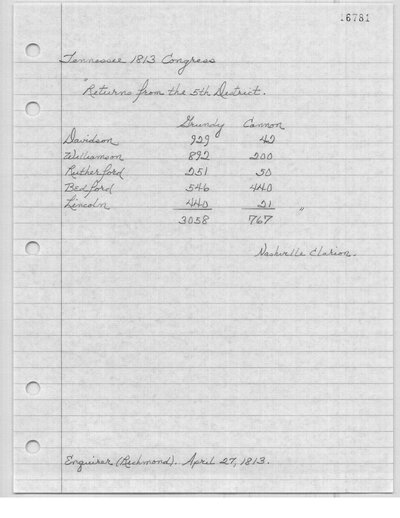 16781
Tennessee 1813 Congress
"Returns from the 5th District.
Grundy Cannon
Davidson 929 42
Williamson 892 200
Rutherford 251 50
Bedford 546 440
Lincoln 440 21
3058 767 "
Nashville Clarion.
Enquirer (Richmond). April 27, 1813.